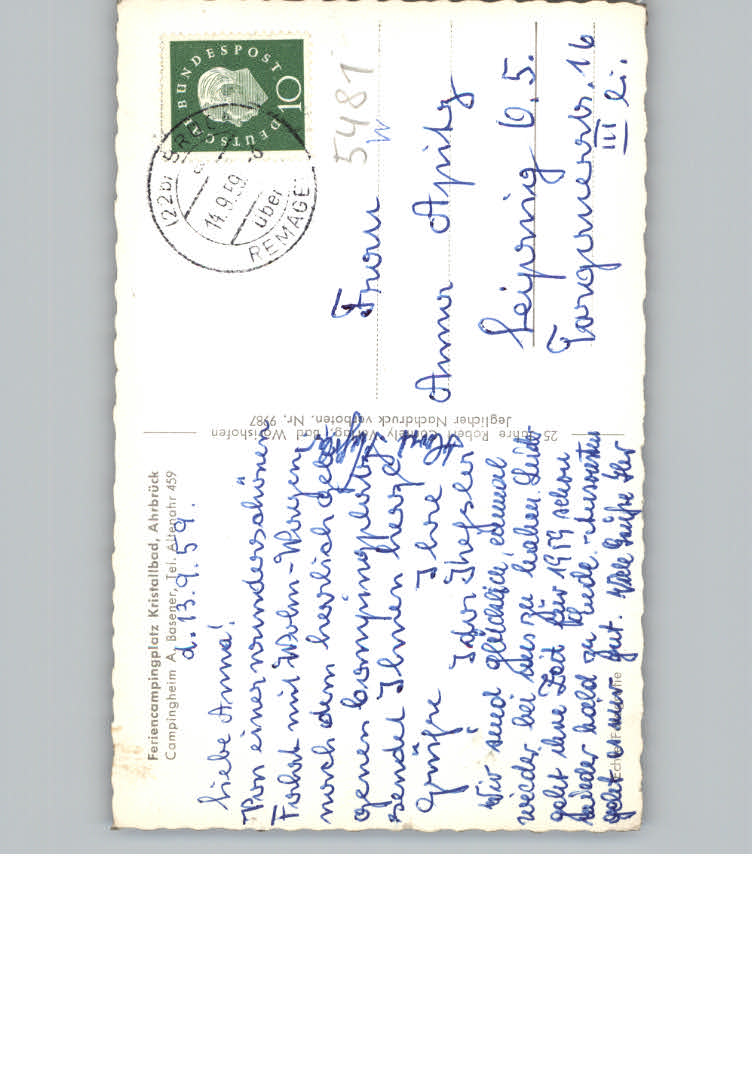 Feriencampingplatz Kristallbad, Ahrbrück
Campingheim A. Basener, Tel. Altenahr 459
d. 13.9.59.
Liebe Anna!
Von einer wunderschönen
Fahrt mit Wohn-Wagen,
nach dem herrlich gele-
genen Campingplatz
sendet Ihnen herzl.
Grüsse Ihre
Horst
Wir sind glücklich, einmal
wieder bei uns zu haben. Leider
geht ihre Zeit für 1959 schon
wieder bald zu Ende.
geht es nur gut. Viele Grüße Ihr
Echte Fo
25 Jahre Robert Verlag, Bad Wörishofen
Jeglicher Nachdruck verboten. Nr. 9987
DEUTSCHE BUNDESPOST
10
(22b)
14.9.59
über
REMAGE
5481
W
Frau
Anna Apitz
Leipzig O.5.
16
III li.